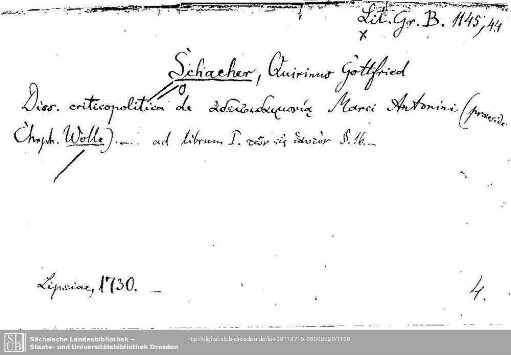 Lit. Gr. B. 1145,44
x
Schacher, Quirinus Gottfried
Diss. criticopolitica de ἀδεισιδαιμονίᾳ Marci Antonini (praeside
Chrph. Wolle). ... ad librum I. τῶν εἰς ἑαυτὸν §. 16. —
Lipsiae, 1730. —
4.
SLUB
Sächsische Landesbibliothek –
Staats- und Universitätsbibliothek Dresden